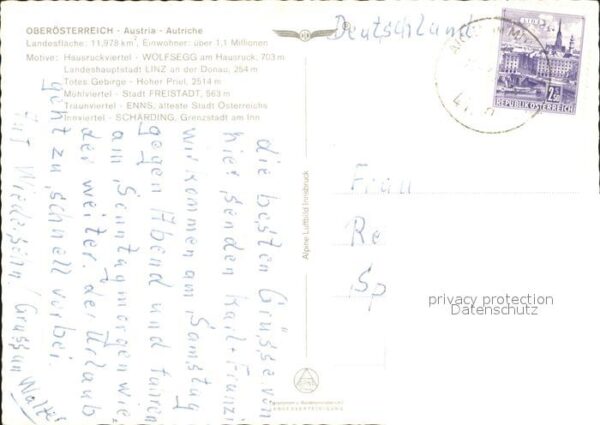 OBERÖSTERREICH - Austria - Autriche
Landesfläche: 11,978 km², Einwohner: über 1,1 Millionen
Motive: Hausruckviertel - WOLFSEGG am Hausruck, 703 m
Landeshauptstadt LINZ an der Donau, 254 m
Totes Gebirge - Hoher Priel, 2514 m
Mühlviertel - Stadt FREISTADT, 563 m
Traunviertel - ENNS, älteste Stadt Österreichs
Innviertel - SCHÄRDING, Grenzstadt am Inn
Deutschland
LINZ
2.50
REPUBLIK ÖSTERREICH
die besten Grüsse von
hier senden Karl + Franzi
wir kommen am Samstag
gegen Abend und fahren
am Sonntagmorgen wie-
der weiter. der Urlaub
geht zu schnell vorbei.
Auf Wiedersehn / Gruss an Walter
Alpine Luftbild Innsbruck
Frau
Re
Sp
privacy protection
Datenschutz